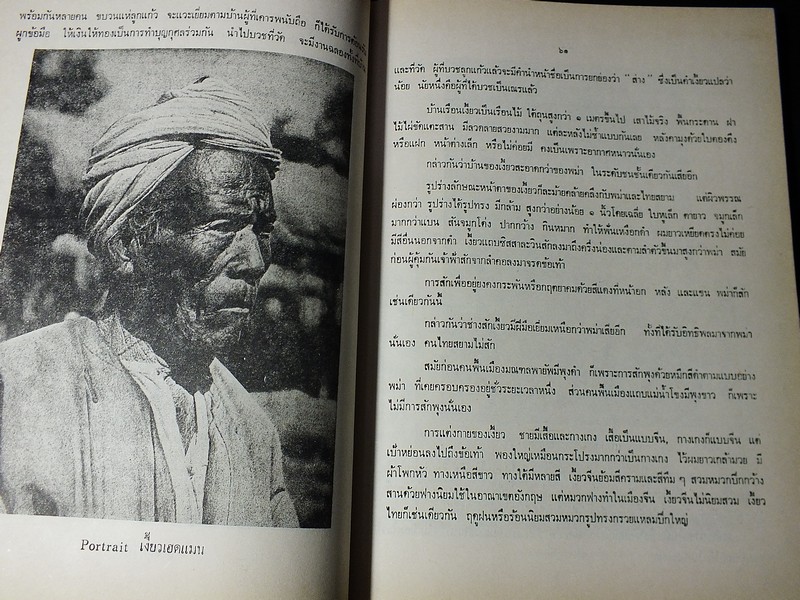 พร้อมกันหลายคน ขบวนแห่ลูกแก้ว จะแวะเยี่ยมตามบ้านผู้ที่เคารพนับถือ ก็ได้รับการต้อนรับ
ผูกข้อมือ ให้เงินให้ทองเป็นการทำบุญกุศลร่วมกัน นำไปบวชที่วัด จะมีงานฉลองทั้งที่บ้าน
Portrait เงี้ยวเฮดแมน
๖๑
และที่วัด ผู้ที่บวชลูกแก้วแล้วจะมีคำนำหน้าชื่อเป็นการยกย่องว่า "ส่าง" ซึ่งเป็นคำเงี้ยวแปลว่า
น้อย น้อยหนึ่งคือผู้ที่ได้บวชเป็นเณรแล้ว
บ้านเรือนเงี้ยวเป็นเรือนไม้ ใต้ถุนสูงกว่า ๑ เมตรขึ้นไป เสาไม้จริง พื้นกระดาน ฝา
ไม้ไผ่ขัดแตะสาน มีลวดลายสวยงามมาก แต่ละหลังไม่ซ้ำแบบกันเลย หลังคามุงด้วยใบตองตึง
หรือแฝก หน้าต่างเล็ก หรือไม่ค่อยมี คงเป็นเพราะอากาศหนาวนั่นเอง
กล่าวกันว่าบ้านของเงี้ยวสะอาดกว่าของพม่า ในระดับชนชั้นเดียวกันเสียอีก
รูปร่างลักษณะหน้าตาของเงี้ยวก็ละม้ายคล้ายคลึงกับพม่าและไทยสยาม แต่ผิวพรรณ
ผ่องกว่า รูปร่างได้รูปทรง มีกล้าม สูงกว่าอย่างน้อย ๑ นิ้วโดยเฉลี่ย ใบหูเล็ก ตายาว จมูกเล็ก
มากกว่าแบน สันจมูกโด่ง ปากกว้าง กินหมาก ทำให้ฟันเหงือกดำ ผมยาวเหยียดตรงไม่ค่อย
มีสีอื่นนอกจากดำ เงี้ยวแถบซิสสาละวินสักลงมาถึงครึ่งน่องและตามลำตัวขึ้นมาสูงกว่าพม่า สมัย
ก่อนผู้คุ้มกันเจ้าฟ้าสักจากลำคอลงมาจรดข้อเท้า
การสักเพื่ออยู่ยงคงกระพันหรือกฤตยาคมด้วยสีแดงที่หน้าอก หลัง และแขน พม่าก็สัก
เช่นเดียวกันนี้
กล่าวกันว่าช่างสักเงี้ยวมีฝีมือเยี่ยมเหนือกว่าพม่าเสียอีก ทั้งที่ได้รับอิทธิพลมาจากพม่า
นั่นเอง คนไทยสยามไม่สัก
สมัยก่อนคนพื้นเมืองมณฑลพายัพมีพุงดำ ก็เพราะการสักพุงด้วยหมึกสีดำตามแบบอย่าง
พม่า ที่เคยครอบครองอยู่ชั่วระยะเวลาหนึ่ง ส่วนคนพื้นเมืองแถบแม่น้ำโขงมีพุงขาว ก็เพราะ
ไม่มีการสักพุงนั่นเอง
การแต่งกายของเงี้ยว ชายมีเสื้อและกางเกง เสื้อเป็นแบบจีน, กางเกงก็แบบจีน แต่
เป้าหย่อนลงไปถึงข้อเท้า พองใหญ่เหมือนกระโปรงมากกว่าเป็นกางเกง ไว้ผมยาวเกล้ามวย มี
ผ้าโพกหัว ทางเหนือสีขาว ทางใต้มีหลายสี เงี้ยวจีนย้อมสีครามและสีทึม ๆ สวมหมวกปีกกว้าง
สานด้วยฟางนิยมใช้ในอาณาเขตอังกฤษ แต่หมวกฟางทำในเมืองจีน เงี้ยวจีนไม่นิยมสวม เงี้ยว
ไทยก็เช่นเดียวกัน ฤดูฝนหรือร้อนนิยมสวมหมวกรูปทรงกรวยแหลมปีกใหญ่